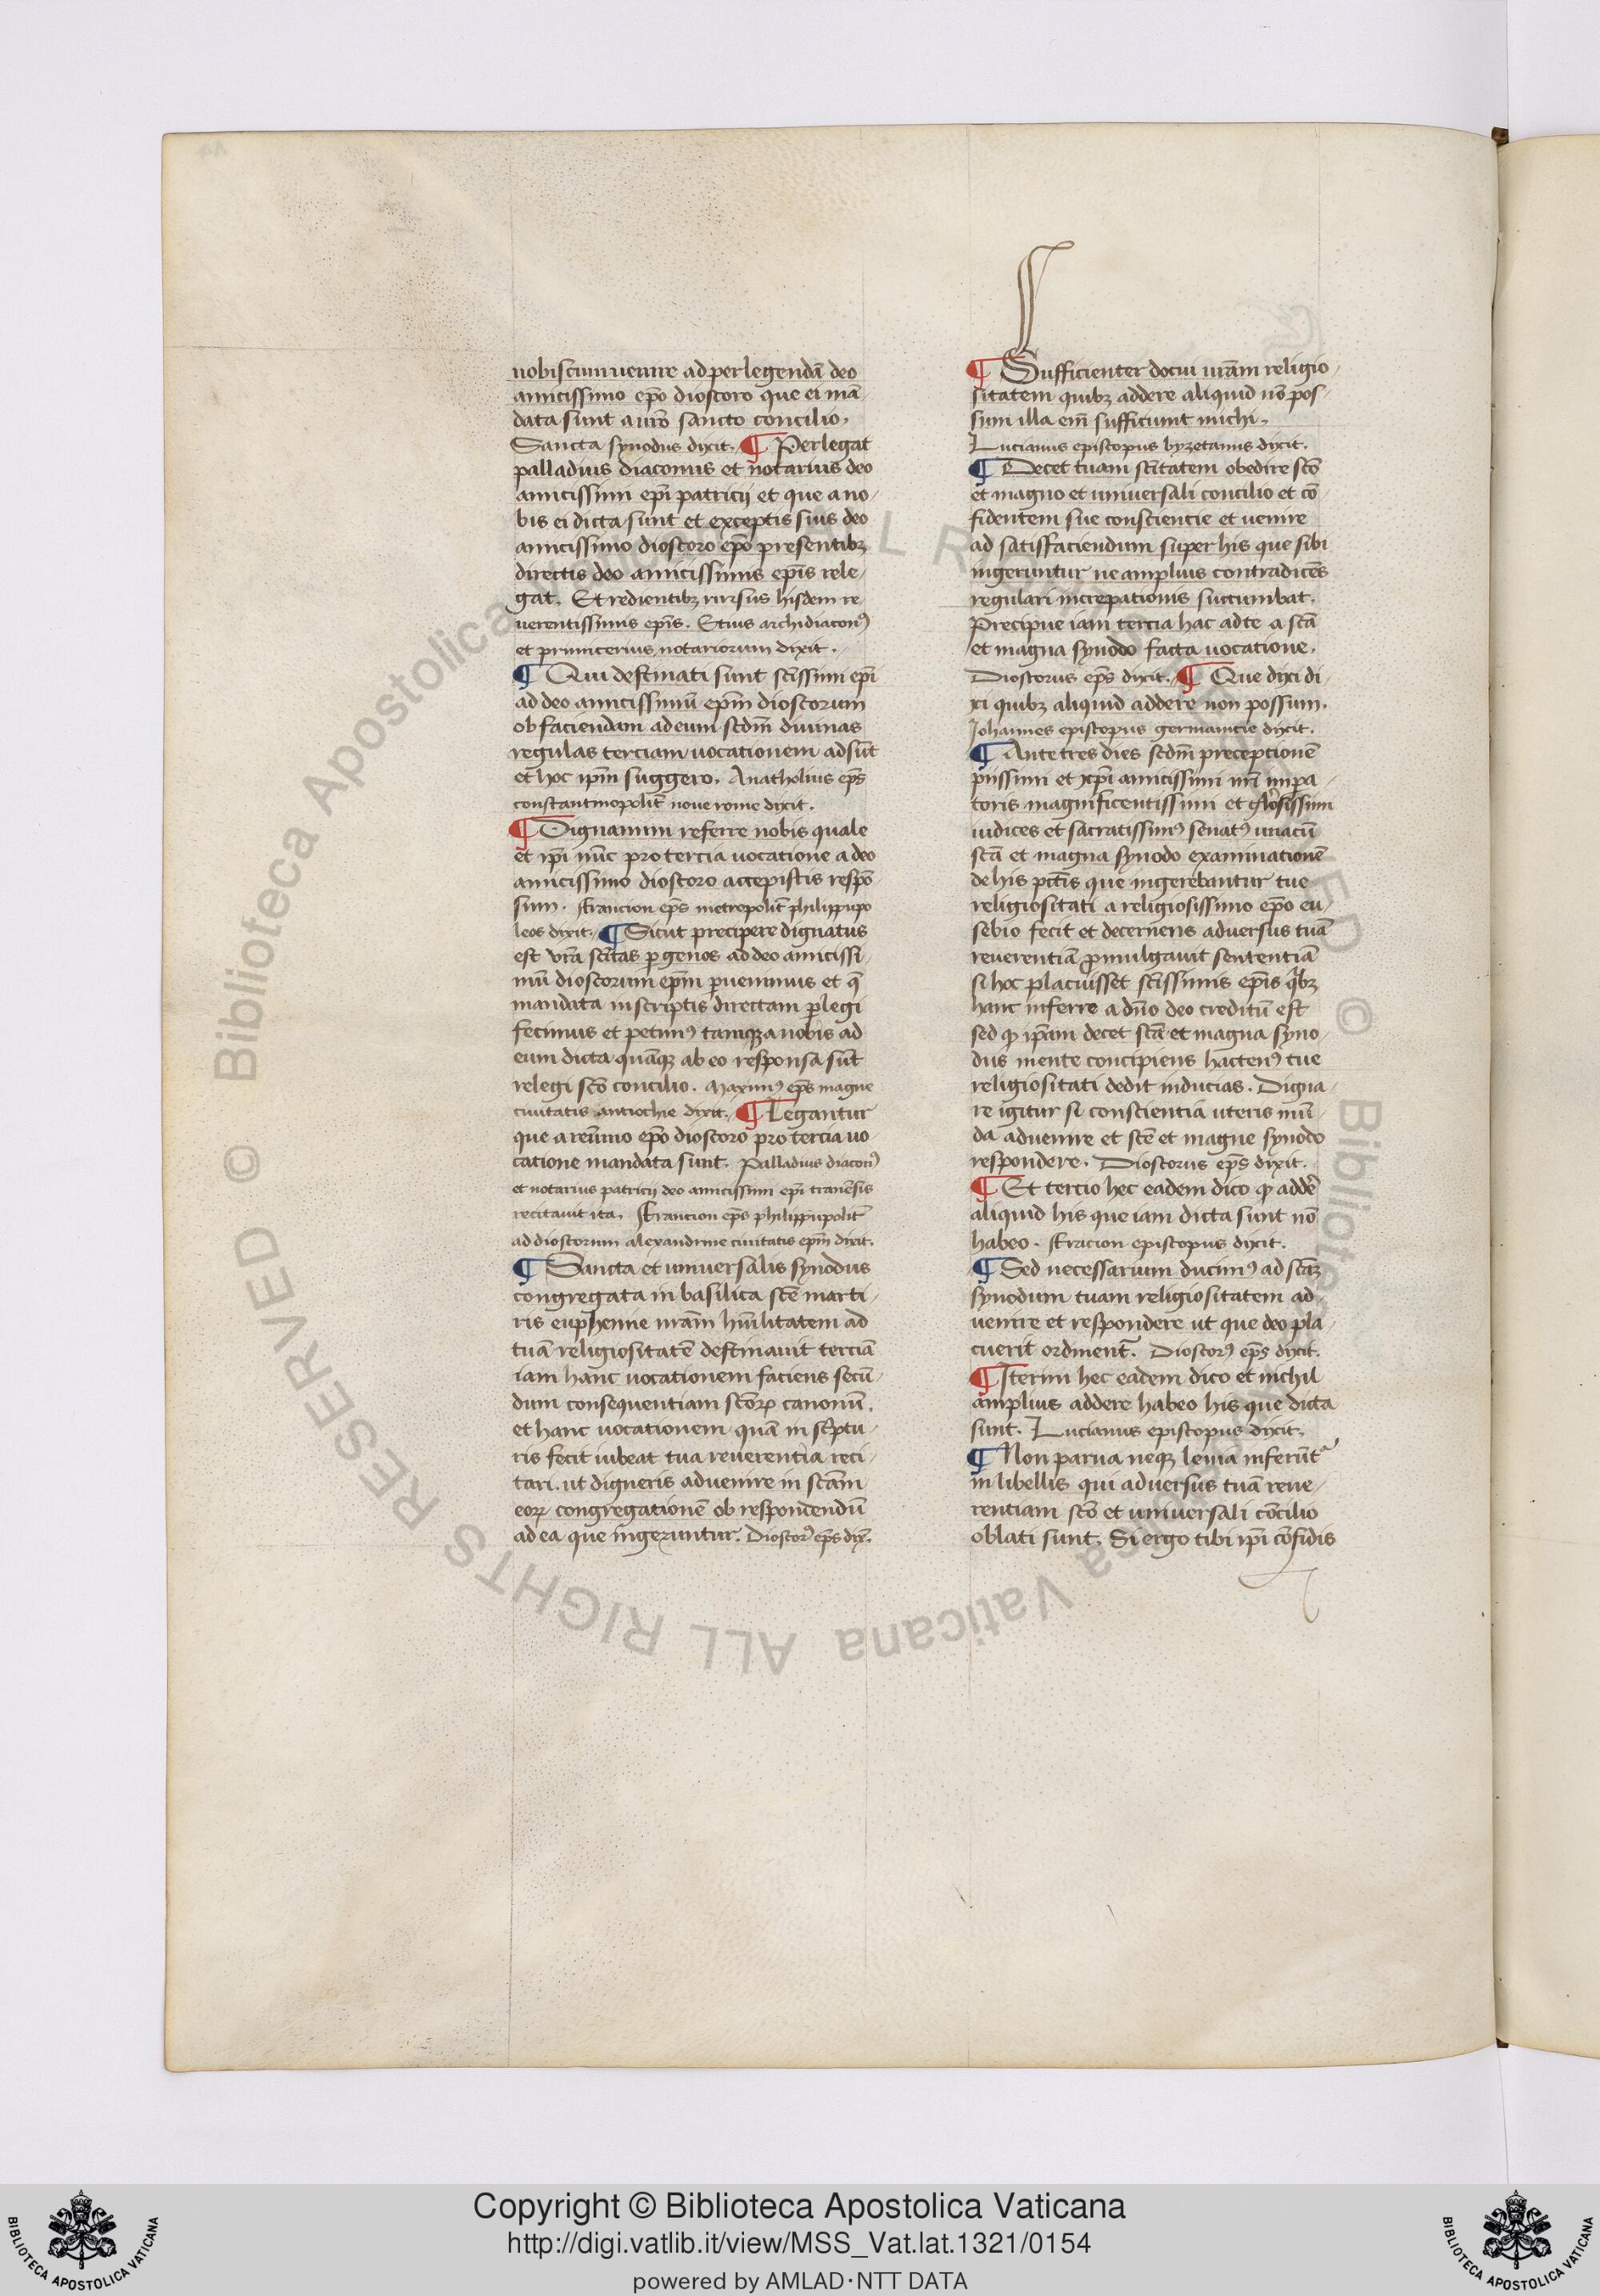 nobiscum uenire ad perlegendā deo
amicissimo ep̄o dioscoro que ei mā-
data sunt a ur̄o sancto concilio.
Sancta synodus dixit. ¶ Perlegat
palladius diaconus et notarius deo
amicissimi ep̄i patricii et que a no-
bis ei dicta sunt et exceptis suis deo
amicissimo dioscoro ep̄o presentibꝫ
directis deo amicissimis ep̄is rele-
gat. Et redientibꝫ rursus hisdem re-
uerentissimis ep̄is. Etius archidiaconꝰ
et primicerius notariorum dixit.
¶ Qui destinati sunt sc̄issimi ep̄i
ad deo amicissimū ep̄m dioscorum
ob faciendam ad eum sc̄dm̄ diuinas
regulas terciam uocationem adsūt
et hoc ip̄m suggero. Anatholius ep̄s
constantinopolit̄ noue rome dixit.
¶ Dignamini referre nobis quale
et ip̄i nūc pro tercia uocatione a deo
amicissimo dioscoro accepistis respō-
sum. Francion ep̄s metropolit̄ philippupo
leos dixit. ¶ Sicut precipere dignatus
est ur̄a sc̄itas ꝑgenos ad deo amicissi-
mū dioscorum ep̄m ꝑuenimus et q̄
mandata in scriptis directam ꝑlegi
fecimus et petimꝰ tamqꝫ a nobis ad
eum dicta quāqꝫ ab eo responsa sūt
relegi sc̄o concilio. Maximꝰ ep̄s magne
ciuitatis antiochie dixit. ¶ Legantur
que a reūmo ep̄o dioscoro pro tercia uo-
catione mandata sunt. Palladius diaconꝰ
et notarius patricii deo amicissimi ep̄i tranēsis
recitauit ita. Francion ep̄s philippupolit̄
ad dioscorum alexandrine ciuitatis ep̄m dixit.
¶ Sancta et uniuersalis synodus
congregata in basilica sc̄e marti-
ris euphemie nr̄am hūilitatem ad
tuā religiositatē destinauit terciā
iam hanc uocationem faciens secū-
dum consequentiam sc̄orꝝ canonū.
et hanc uocationem quā in sc̄ptu-
ris fecit iubeat tua reuerentia reci-
tari. ut digneris aduenire in sc̄am
eorꝝ congregationē ob respondendū
ad ea que ingeruntur. Dioscorꝰ ep̄s dix̄.
¶ Sufficienter docui ur̄am religio-
sitatem quibꝫ addere aliquid nō pos-
sum illa em̄ sufficiunt michi.
Lucianus episcopus byzetanus dixit.
¶ Decet tuam sc̄itatem obedire sc̄o
et magno et uniuersali concilio et cō-
fidentem sue conscientie et uenire
ad satisfaciendum super his que sibi
ingeruntur ne amplius contradicēs
regulari increpationis succumbat.
Precipue iam tercia hac ad te a sc̄a
et magna synodo facta uocatione.
Dioscorus ep̄s dixit. ¶ Que dixi di-
xi quibꝫ aliquid addere non possum.
Johannes episcopus germanicie dixit.
¶ Ante tres dies sc̄dm̄ preceptionē
piissimi et xp̄i amicissimi nr̄i impa-
toris magnificentissimi et gl̄osissimi
iudices et sacratissimꝰ senatꝰ unacū
sc̄a et magna synodo examinationē
de his pc̄tis que ingerebantur tue
religiositati a religiosissimo ep̄o eu-
sebio fecit et decernens aduersus tuā
reuerentiā ꝓmulgauit sententiā
si hoc placuisset sc̄issimis ep̄is qͥbꝫ
hanc inferre a dn̄o deo creditū est
sed ꝙ ip̄am decet sc̄a et magna syno-
dus mente concipiens hactenꝰ tue
religiositati dedit inducias. Digna-
re igitur si conscientia uteris mū-
da aduenire et sc̄e et magne synodo
respondere. Dioscorus ep̄s dixit.
¶ Et tercio hec eadem dico ꝙ addē
aliquid his que iam dicta sunt nō
habeo. Fracion episcopus dixit.
¶ Sed necessarium ducimꝰ ad sc̄aꝫ
synodum tuam religiositatem ad-
uenire et respondere ut que deo pla-
cuerit ordinent̄. Dioscorꝰ ep̄s dixit.
¶ Iterim hec eadem dico et nichil
amplius addere habeo his que dicta
sunt. Lucianus episcopus dixit.
¶ Non parua neqꝫ leuia inferūt᷑
in libellis qui aduersus tuā reue-
rentiam sc̄o et uniuersali cōcilio
oblati sunt. Si ergo tibi ip̄i cōfidis
© Biblioteca Apostolica Vaticana ALL RIGHTS RESERVED
Copyright © Biblioteca Apostolica Vaticana
http://digi.vatlib.it/view/MSS_Vat.lat.1321/0154
powered by AMLAD·NTT DATA
BIBLIOTECA APOSTOLICA VATICANA
BIBLIOTECA APOSTOLICA VATICANA